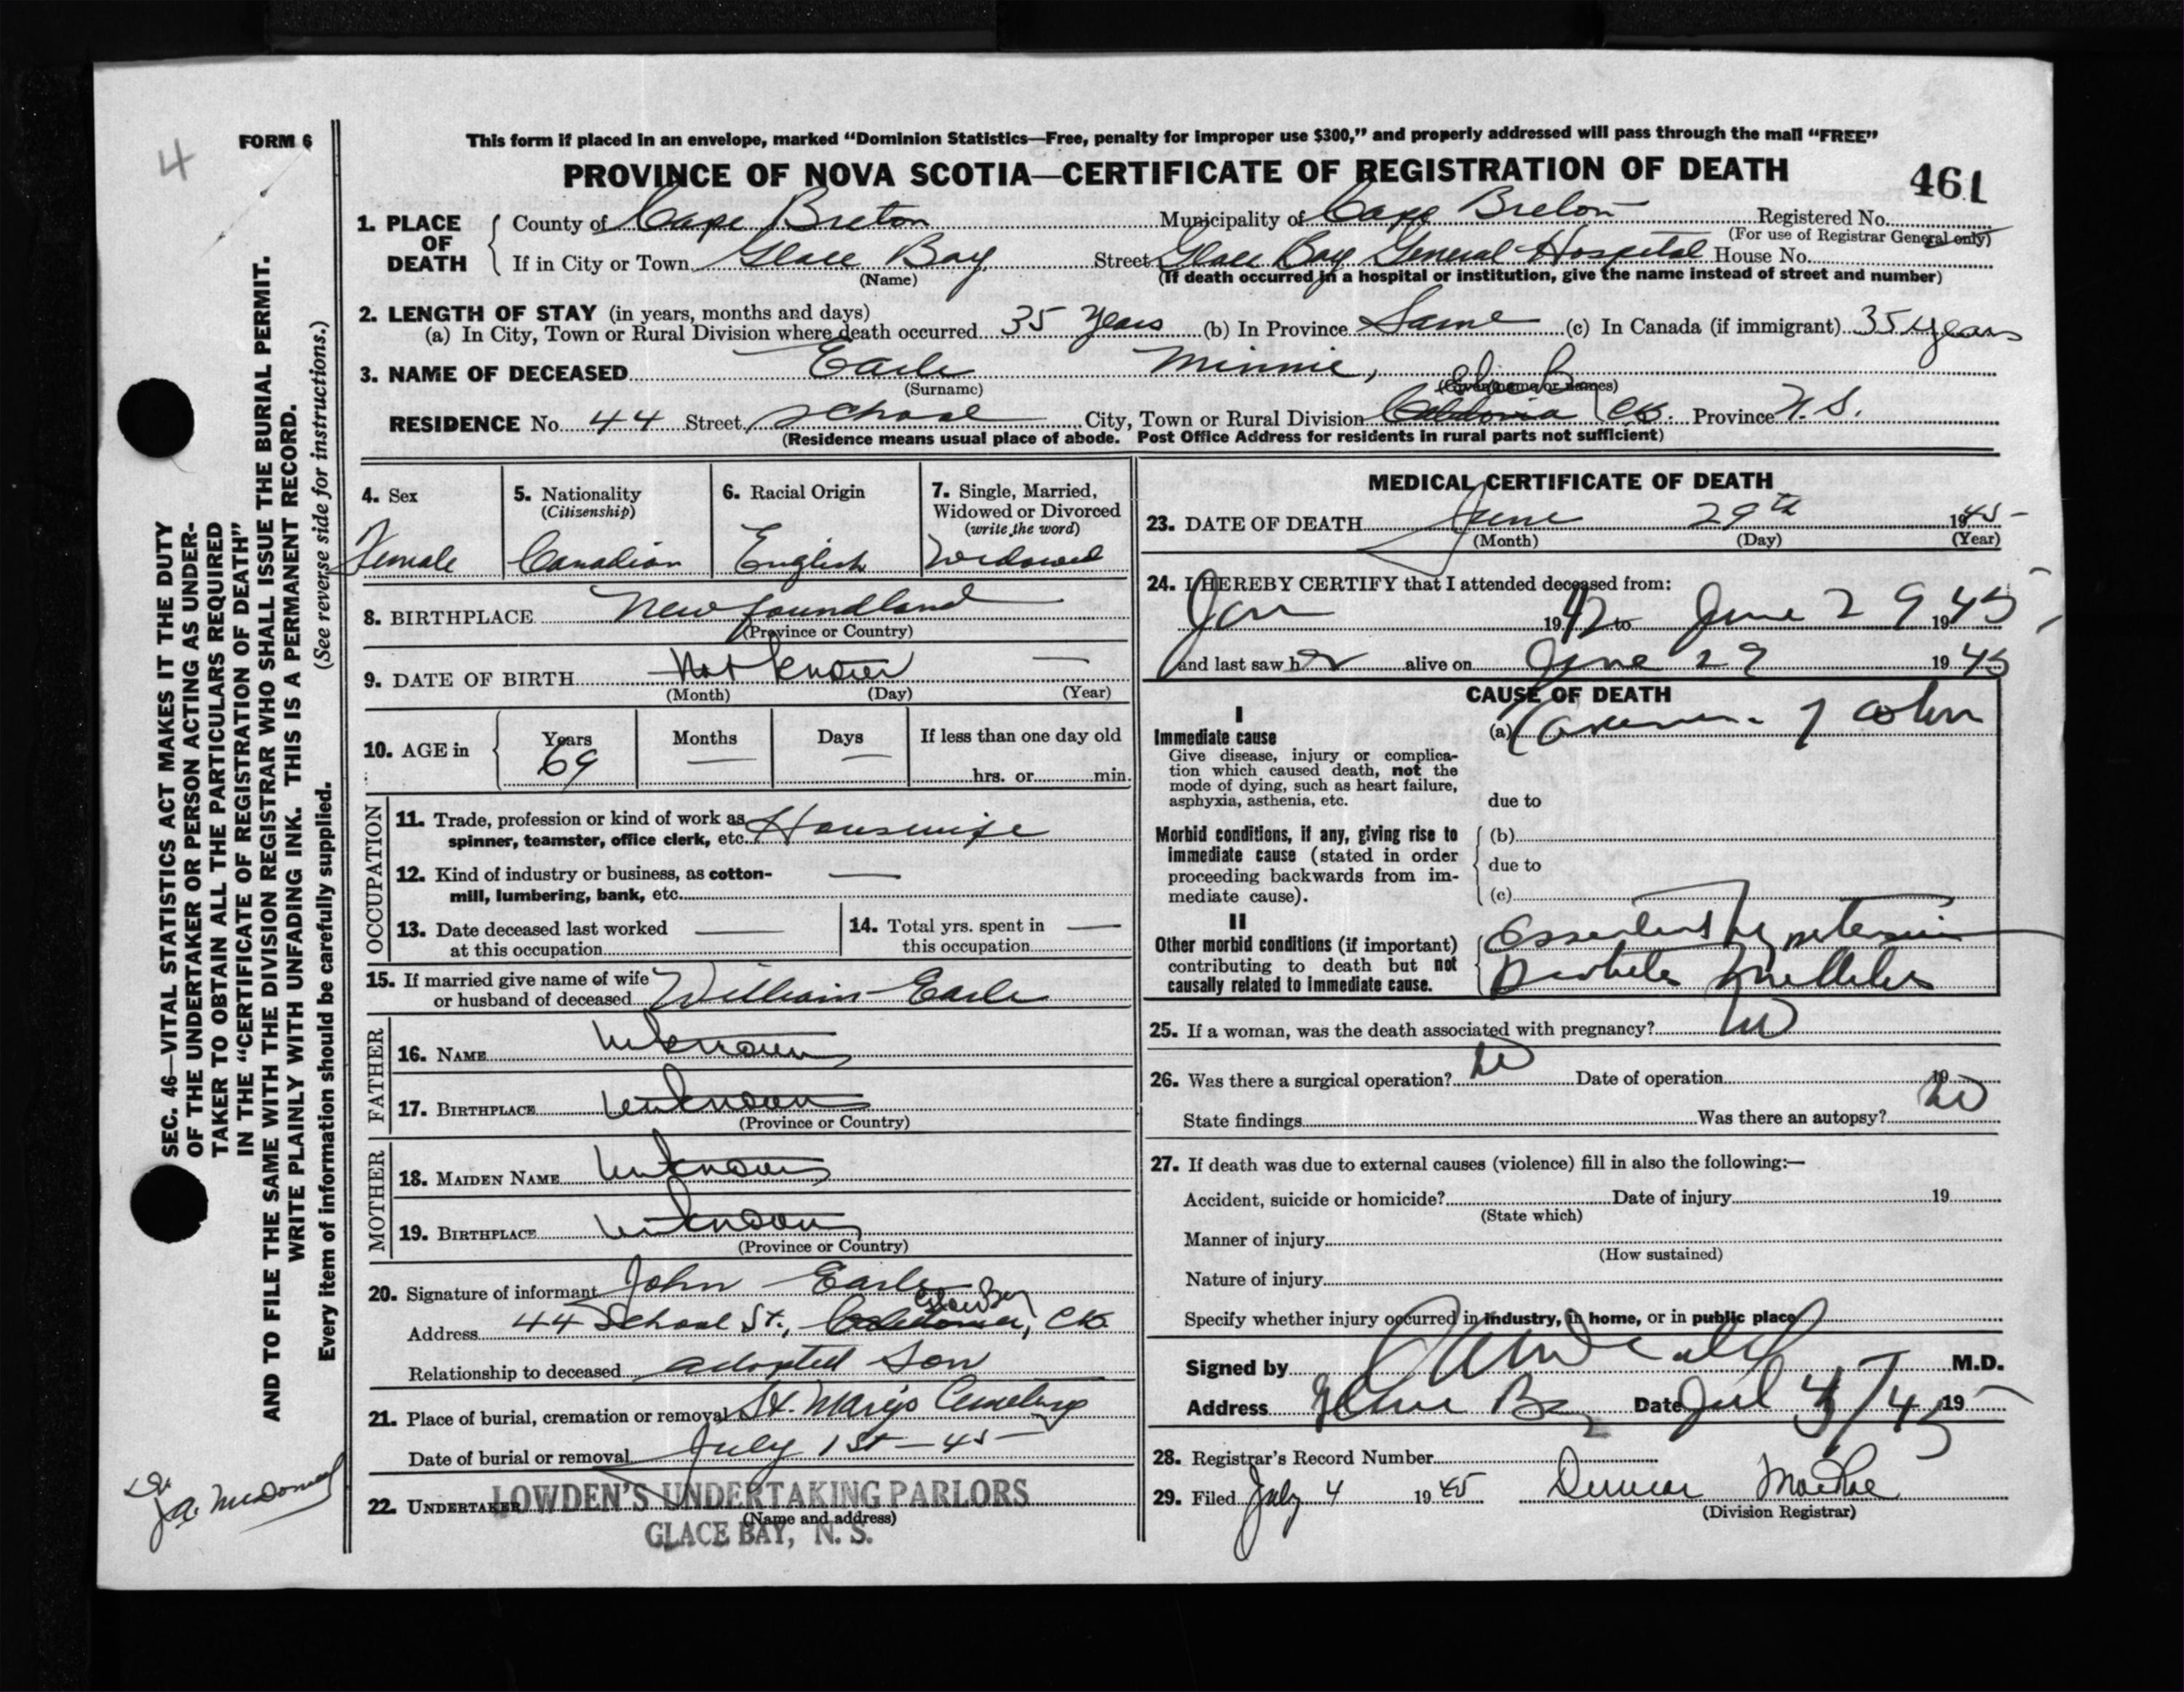 4
FORM 6
This form if placed in an envelope, marked “Dominion Statistics—Free, penalty for improper use $300,” and properly addressed will pass through the mail “FREE”
PROVINCE OF NOVA SCOTIA—CERTIFICATE OF REGISTRATION OF DEATH
461
1. PLACE OF DEATH
County of Cape Breton Municipality of Cape Breton Registered No.
(For use of Registrar General only)
If in City or Town Glace Bay Street Glace Bay General Hospital House No.
(Name) (If death occurred in a hospital or institution, give the name instead of street and number)
2. LENGTH OF STAY (in years, months and days)
(a) In City, Town or Rural Division where death occurred 35 years (b) In Province Same (c) In Canada (if immigrant) 35 years
3. NAME OF DECEASED Earle Minnie,
(Surname) (Given name or names)
Glace Bay
RESIDENCE No. 44 Street School City, Town or Rural Division Caledonia C.B. Province N. S.
(Residence means usual place of abode. Post Office Address for residents in rural parts not sufficient)
SEC. 46—VITAL STATISTICS ACT MAKES IT THE DUTY
OF THE UNDERTAKER OR PERSON ACTING AS UNDER-
TAKER TO OBTAIN ALL THE PARTICULARS REQUIRED
IN THE “CERTIFICATE OF REGISTRATION OF DEATH”
AND TO FILE THE SAME WITH THE DIVISION REGISTRAR WHO SHALL ISSUE THE BURIAL PERMIT.
WRITE PLAINLY WITH UNFADING INK. THIS IS A PERMANENT RECORD.
Every item of information should be carefully supplied. (See reverse side for instructions.)
4. Sex
Female
5. Nationality
(Citizenship)
Canadian
6. Racial Origin
English
7. Single, Married,
Widowed or Divorced
(write the word)
Widowed
8. BIRTHPLACE Newfoundland
(Province or Country)
9. DATE OF BIRTH Not known —
(Month) (Day) (Year)
10. AGE in
Years Months Days If less than one day old
69 — —
hrs. or min.
OCCUPATION
11. Trade, profession or kind of work as
spinner, teamster, office clerk, etc. Housewife
12. Kind of industry or business, as cotton-
mill, lumbering, bank, etc. —
13. Date deceased last worked
at this occupation —
14. Total yrs. spent in
this occupation —
15. If married give name of wife
or husband of deceased William Earle
FATHER
16. NAME Unknown
17. BIRTHPLACE Unknown
(Province or Country)
MOTHER
18. MAIDEN NAME Unknown
19. BIRTHPLACE Unknown
(Province or Country)
20. Signature of informant John Earle
Glace Bay
Address 44 School St., Caledonia, C.B.
Relationship to deceased adopted son
21. Place of burial, cremation or removal St. Mary's Cemetery
Date of burial or removal July 1st — 45
22. UNDERTAKER LOWDEN'S UNDERTAKING PARLORS
(Name and address)
GLACE BAY, N. S.
Dr.
J.A. McDonald
MEDICAL CERTIFICATE OF DEATH
23. DATE OF DEATH June 29th 1945
(Month) (Day) (Year)
24. I HEREBY CERTIFY that I attended deceased from:
Jan 1942 to June 29 1945
and last saw her alive on June 29 1945
CAUSE OF DEATH
I
Immediate cause
Give disease, injury or complica-
tion which caused death, not the
mode of dying, such as heart failure,
asphyxia, asthenia, etc.
(a) Carcinoma of colon
due to
Morbid conditions, if any, giving rise to
immediate cause (stated in order
proceeding backwards from im-
mediate cause).
(b)
due to
(c)
II
Other morbid conditions (if important)
contributing to death but not
causally related to immediate cause.
Essential Hypertension
Diabetes Mellitus
25. If a woman, was the death associated with pregnancy? No
26. Was there a surgical operation? No Date of operation 19
State findings Was there an autopsy? No
27. If death was due to external causes (violence) fill in also the following:—
Accident, suicide or homicide? Date of injury 19
(State which)
Manner of injury
(How sustained)
Nature of injury
Specify whether injury occurred in industry, in home, or in public place
Signed by M.D.
Address Glace Bay Date Jul 4/45 19
28. Registrar's Record Number
29. Filed July 4 1945 Duncan MacRae
(Division Registrar)